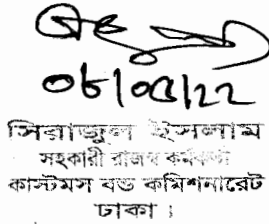 ০৮/০৫/২২
সিরাজুল ইসলাম
সহকারী রাজস্ব কর্মকর্তা
কাস্টমস বন্ড কমিশনারেট
ঢাকা ;